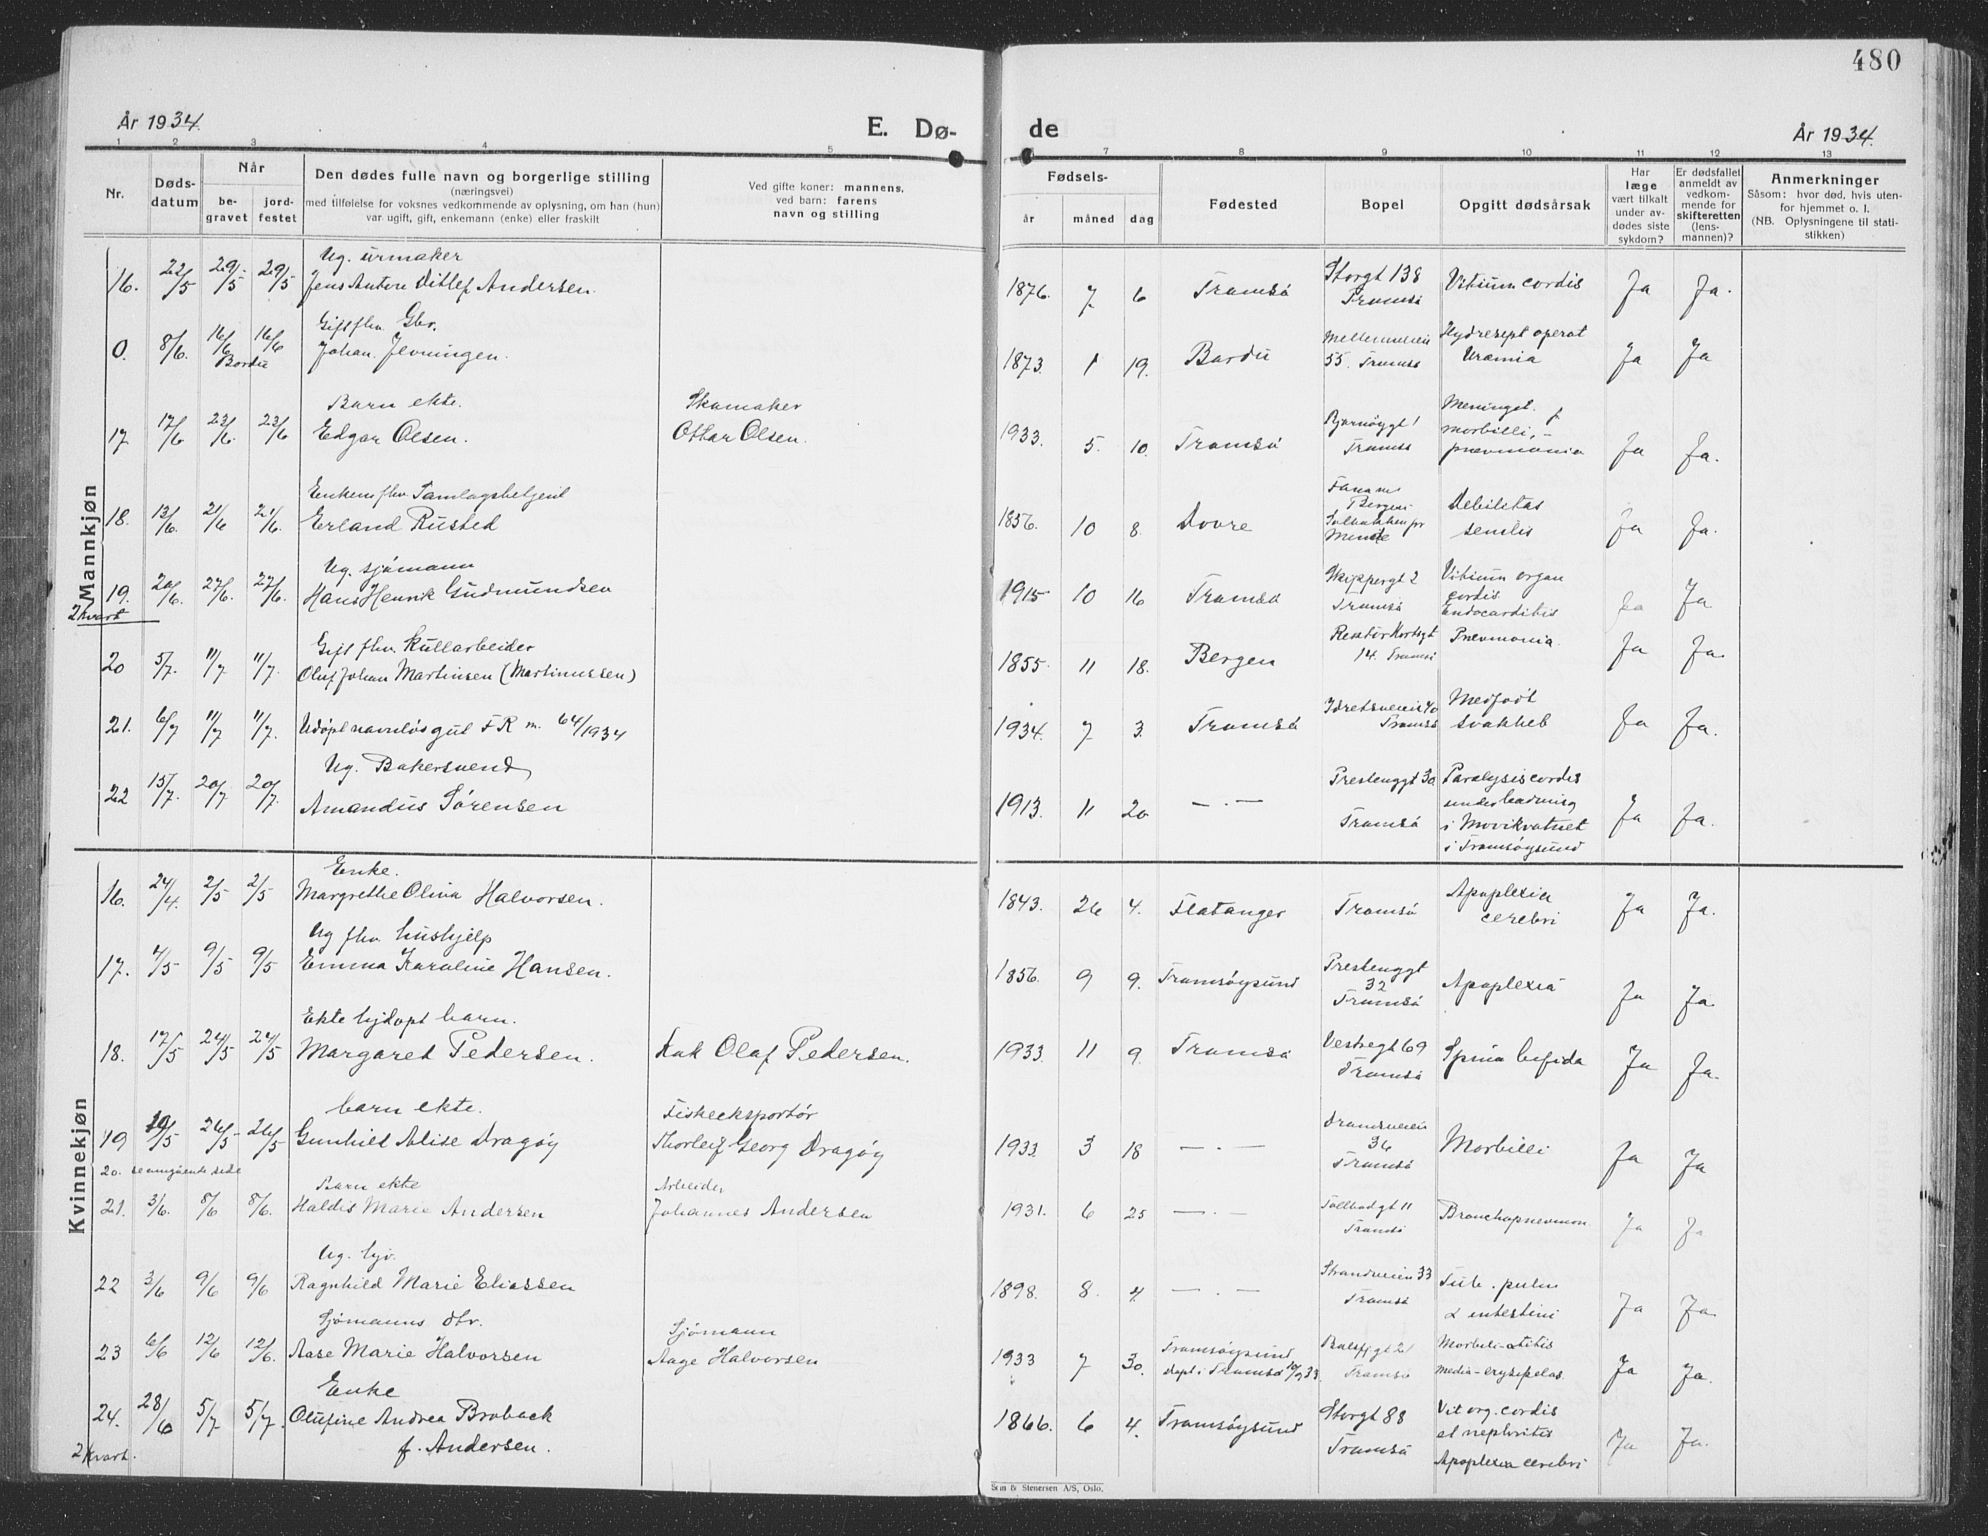 480
År 1934.
E. Dø-
de
År 1934.
1 2 3 4 5 6 7 8 9 10 11 12 13
Nr.
Døds-
datum
Når
be-
gravet
jord-
festet
Den dødes fulle navn og borgerlige stilling
(næringsvei)
med tilføielse for voksnes vedkommende av oplysning, om han (hun)
var ugift, gift, enkemann (enke) eller fraskilt
Ved gifte koner: mannens,
ved barn: farens
navn og stilling
Fødsels-
år måned dag
Fødested
Bopel
Opgitt dødsårsak
Har
læge
vært tilkalt
under av-
dødes siste
sykdom?
Er dødsfallet
anmeldt av
vedkom-
mende for
skifteretten
(lens-
mannen)?
Anmerkninger
Såsom: hvor død, hvis uten-
for hjemmet o. l.
(NB. Oplysningene til stati-
stikken)
Mannkjøn
Ug. urmaker
16. 22/5 29/5 29/5 Jens Anton Ditlef Andersen. 1876. 7 6 Tromsø Storgt 138 Tromsø Vitium cordis Ja Ja.
Gift fhv. Gbr.
0. 8/6. 16/6 16/6 Bardu Johan Jevningen. 1873. 1 19. Bardu Mellemveien 55. Tromsø operat Uræmia Ja Ja
Barn ekte. Skomaker
17. 17/6 23/6. 23/6 Edgar Olsen. Ottar Olsen. 1933. 5. 10. Tromsø Bjørnøygt 1 Tromsø Meningit. morbilli, pnevmonia Ja Ja.
Enkem. fhv. Samlagsbetjent
18. 13/6. 21/6 21/6. Erland Rusted 1856. 10 8. Dovre Bergen Debilitas senilis Ja Ja.
Ug. sjømann
19. 20/6. 27/6. 27/6. Hans Henrik Gudmundsen 1915 10 16 Tromsø Skippergt 2 Tromsø Vitium organ cordis Endocarditis Ja Ja
2 Kvart
Gift fhv. Kullarbeider
20 5/7. 11/7 11/7. Oluf Johan Martinsen (Martinussen) 1855. 11 18. Bergen Rektor Hortsgt 14. Tromsø Pnevmonia. Ja Ja.
21. 6/7 11/7 11/7. Udøpt navnløs gut F R m. 64/1934 1934. 7 3. Tromsø Tromsø Medfødt svakhet Ja Ja.
Ug. Bakersvend
22 15/7. 20/7 20/7. Amandus Sørensen 1913. 11 20 — . — Prestenggt 30 Tromsø Paralysis cordis under badning i Movikvatnet i Tromsøysund Ja Ja.
Kvinnekjøn
Enke.
16. 24/4. 2/5 2/5 Margrethe Olina Halvorsen. 1843. 26 4. Flatanger Tromsø Apoplexia cerebri Ja Ja.
Ug fhv. hushjelp
17. 4/5 9/5 9/5 Emma Karoline Hansen. 1856. 9 9. Tromsøysund Prestenggt 32 Tromsø Apoplexia Ja Ja
Ekte hjdøpt barn.
18. 17/5 24/5 24/5 Margaret Pedersen. Olaf Pedersen. 1933. 11 9. Tromsø Vestregt 69 Tromsø Spina bifida Ja Ja.
barn ekte. Fiskeeksportør
19 26/5 26/5 Gunhild Alise Dragøy Thorleif Georg Dragøy 1933 3 18 — . — 36 Tromsø Morbilli Ja Ja
20. se omgående side
Barn ekte Arbeider
21. 3/6. 8/6 8/6. Haldis Marie Andersen Johannes Andersen 1931. 6 25 — . — Tollbodgt 11 Tromsø Bronchopnevmon Ja Ja
Ug. hjv.
22 3/6 9/6 9/6 Ragnhild Marie Eliassen 1898. 8. 4. — . — Strandveien 33 Tromsø Tub. pulm & intestini Ja Ja.
Sjømanns dtr. Sjømann
23 6/6 12/6 12/6. Aase Marie Halvorsen Aage Halvorsen 1933 7 30. Tromsøysund døpt i Tromsø 10/9 33. Balsfjgt 21 Tromsø Morbili-otitis media-erysipelas Ja Ja.
Enke
24. 28/6 5/7 5/7. Olufine Andrea Broback 1866. 6 4. Tromsøysund Storgt 88 Tromsø Vit org. cordis et nephritis Apoplexia cerebri Ja Ja.
f. Andersen.
2 Kvart.
Sem & Stenersen A/S, Oslo.